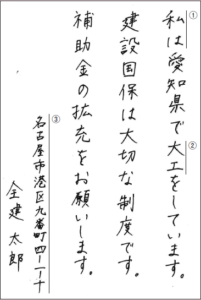 ①
私は愛知県で大工をしています。
②
建設国保は大切な制度です。
補助金の拡充をお願いします。
③
名古屋市港区九番町四ー一ー十
全建太郎